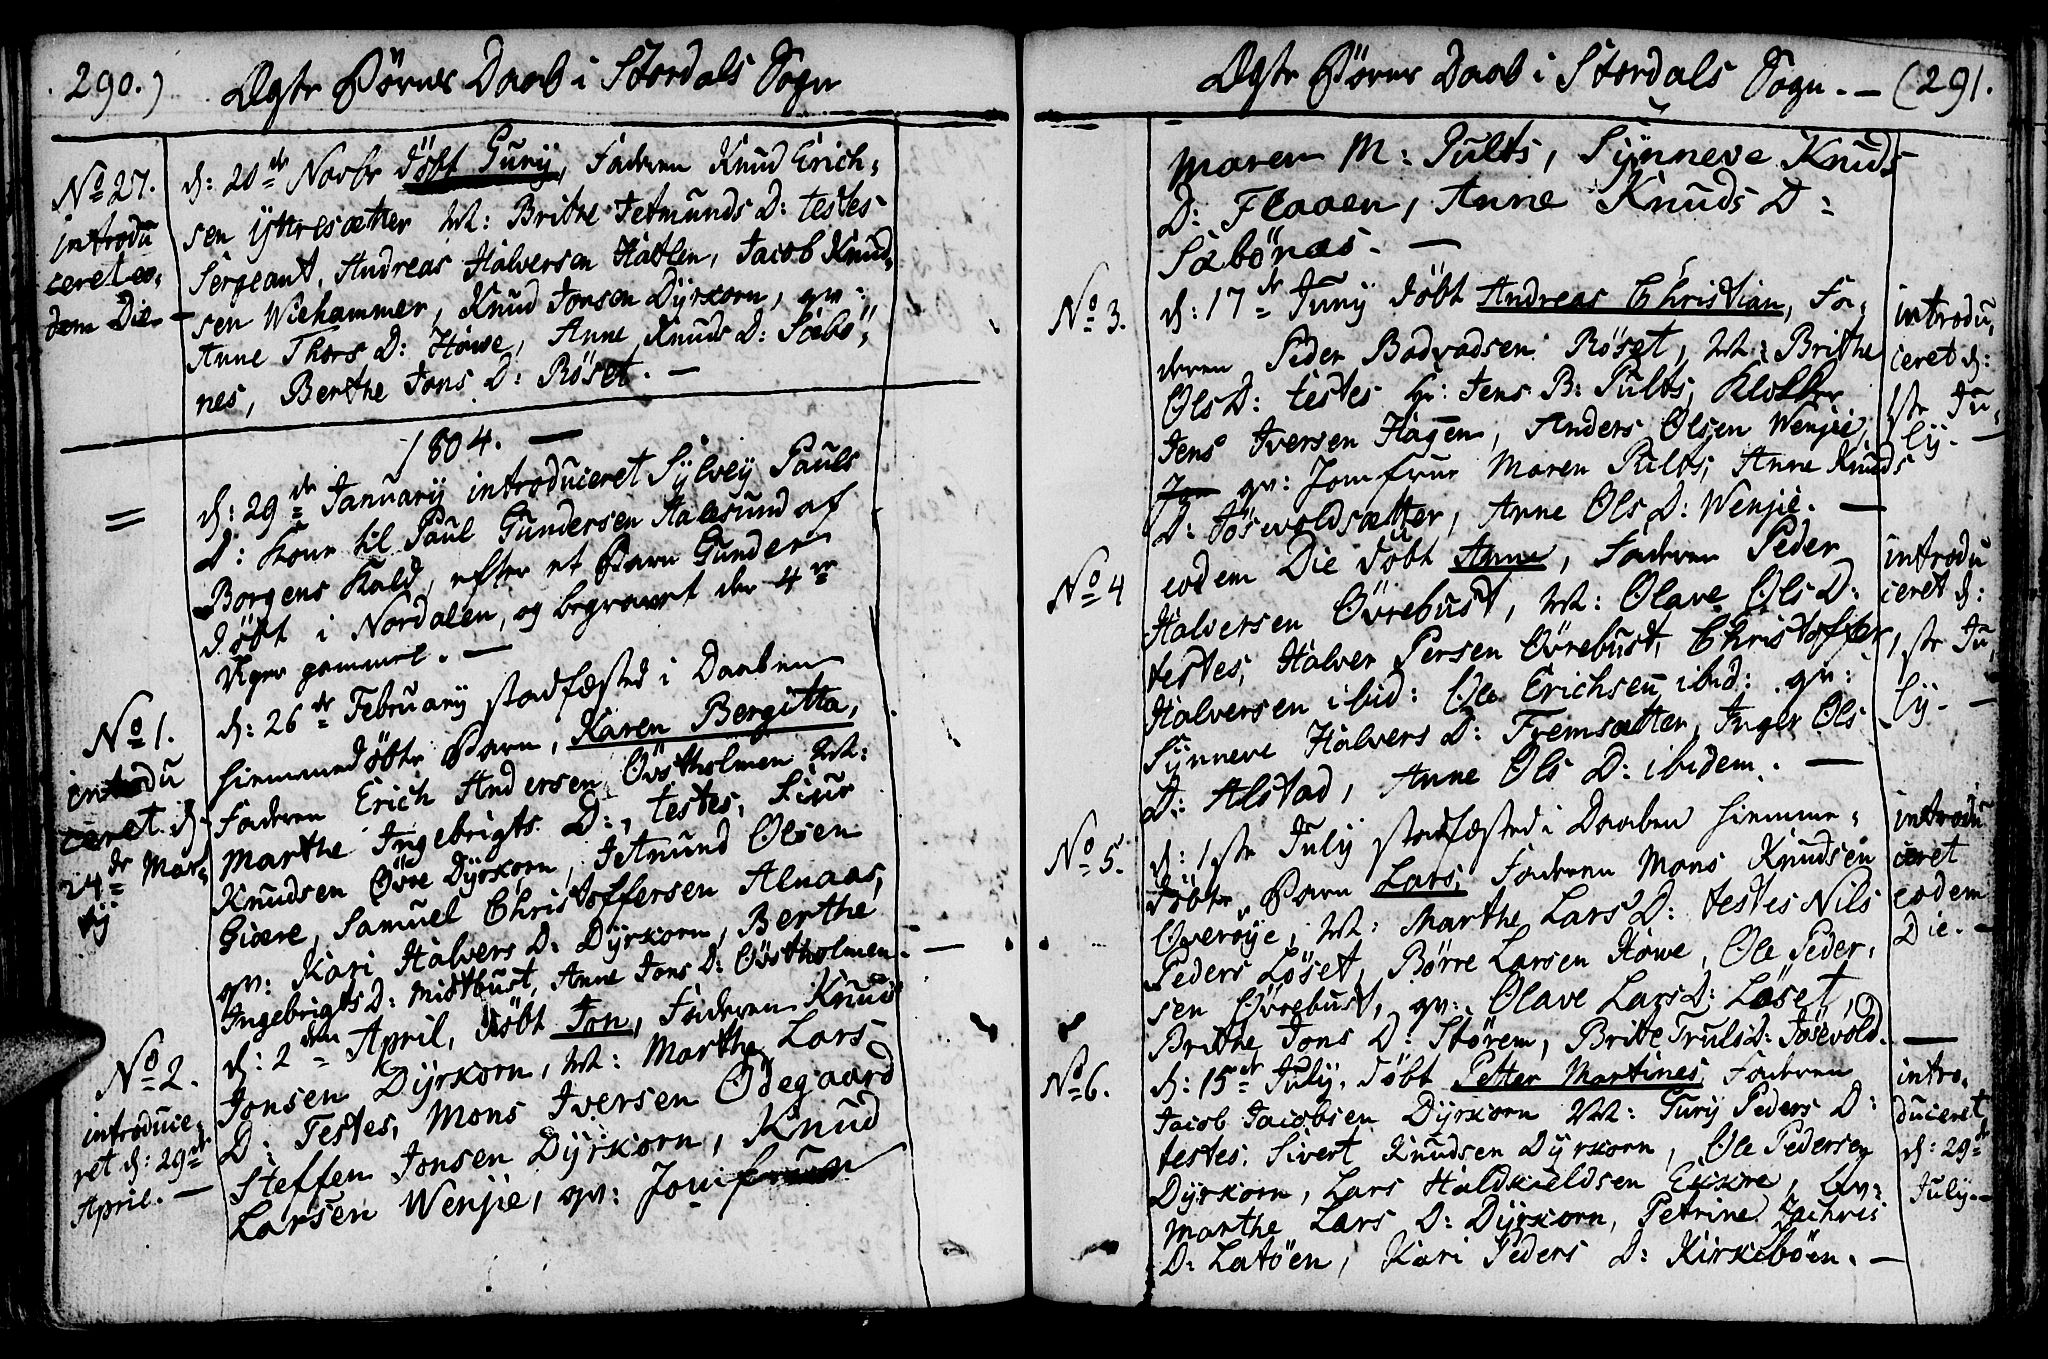 290.) Ægte Børns Daab i Stordals Sogn
No 27.
introdu
ceret eo,
dem Die
d: 20de Novbr döbt Gurij, Faderen Knud Erich-
sen Ijttresætter M: Brithe Jetmunds D: testes
Sergeant, Andreas Halversen Hatlen, Jacob Knud,
sen Wiehammer, Knud Jonsen Dÿrkorn, qv:
Anne Thors D: Howe, Anne Knuds D: Sæbö,
nes, Berthe Jons D: Röset. —
1804. —
=
d: 29de Januarij introduceret Sÿlveÿ Pauls
D: Kone til Paul Gundersen Aalesund af
Borgens Kald, efter et Barn Gunder
döbt i Nordalen, og begravet der 4re
Uger gammel. —
No 1.
introdu
ceret d:
24de Mar,
tij
d: 26de Februarij stadfæsted i Daaben
hiemmedöbte Barn, Karen Bergitta,
Faderen Erich Andersen Övstholmen M:
Marthe Ingebrigts D:, testes, Siur
Knudsen Övre Dÿrkorn, Jetmund Olsen
Giære, Samuel Christoffersen Alnaas,
qv: Kari Halvers D: Dÿrkorn, Berthe
Ingebrigts D: Mistbust, Anne Jons D: Övstholmen.
No 2.
introduce,
ret d: 29de
April. —
d: 2den April, döbt Jon, Faderen Knud
Jonsen Dÿrkorn, M: Marthe Lars
D: Testes, Mons Iversen Ödegaard
Steffen Jonsen Dÿrkorn, Knud
Larsen Wenjie, qv: Jomfruer
Ægte Börns Daab i Stordals Sogn. — (291.
Maren M: Pults, Sÿnneve Knuds
D: Flaaen, Anne Knuds D:
Sæbönæs. —
No 3.
d: 17de Junij döbt Andreas Christian, Fa,
deren Peder Badvadsen Röset, M: Brithe
Ols D: testes Hr: Jens B: Pults, Klokker
Jens Iversen Hagen, Anders Olsen Wenjie,
Jon qv: Jomfrue Maren Pults, Anne Knuds
D: Jösevoldsætter, Anne Ols D: Wenjie. —
introdu,
ceret d:
1ste Ju,
lij. —
No 4
eodem Die döbt Anne, Faderen Peder
Halversen Övrebust, M: Olave Ols D:
testes, Halver Persen Övrebust, Christoffer
Halversen ibid: Ole Erichsen ibid: qv:
Sÿnneve Halvers D: Fremsætter, Inger Ols
D: Alstad, Anne Ols D: ibidem. —
introdu
ceret d:
1ste Ju,
lij. —
No 5.
d: 1ste Julij stadfæsted i Daaben hiemme-
döbte Barn Lars, Faderen Mons Knudsen
Overöje, M: Marthe Lars D: testes Nils
Peders Löset, Börre Larsen Howe, Ole Peder,
sen Övrebust, qv: Olave Lars D: Löset,
Brithe Jons D: Störem, Brite Truls D: Jösevold. —
introdu
ceret
eodem
Die. —
No 6.
d: 15de Julij, döbt Petter Martines, Faderen
Jacob Jacobsen Dÿrkorn M: Gurij Peders D:
testes, Sivert Knudsen Dÿrkorn, Ole Pedersen
Dÿrkorn, Lars Haldkieldsen Eckre, qv:
Marthe Lars D: Dÿrkorn, Petrine Zachris
D: Latöen, Kari Peders D: Kirkeböen. —
intro,
duceret
d: 29de
Julij. —